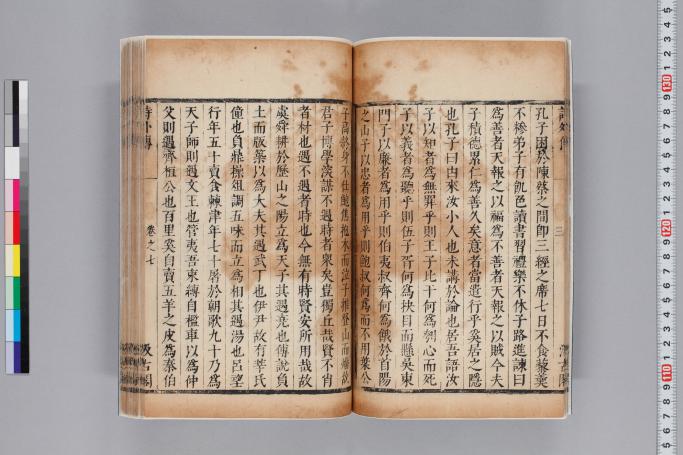 詩外傳
三
孔子困於陳蔡之間即三經之席七日不食藜羹
不糝弟子有飢色讀書習禮樂不休子路進諫曰
為善者天報之以福為不善者天報之以賊今夫
子積德累仁為善久矣意者當遣行乎奚居之隱
也孔子曰由來汝小人也未講於論也居吾語汝
子以知者為無罪乎則王子比干何為刳心而死
子以義者為聽乎則伍子胥何為抉目而懸吳東
門子以廉者為用乎則伯夷叔齊何為餓於首陽
之山子以忠者為用乎則鮑叔何為而不用葉公
子高終身不仕鮑焦抱木而泣子推登山而燔故
君子博學深謀不遇時者衆矣豈獨丘哉賢不肖
者材也遇不遇者時也今無有時賢安所用哉故
虞舜耕於歷山之陽立為天子其遇堯也傅說負
土而版築以為大夫其遇武丁也伊尹故有莘氏
僮也負鼎操俎調五味而立為相其遇湯也呂望
行年五十賣食棘津年七十屠於朝歌九十乃為
天子師則遇文王也管夷吾束縛自檻車以為仲
父則遇齊桓公也百里奚自賣五羊之皮為秦伯
詩外傳
卷之七
汲古閣
5 4 3 2 1 130 9 8 7 6 5 4 3 2 1 120 9 8 7 6 5 4 3 2 1 110 9 8 7 6 5